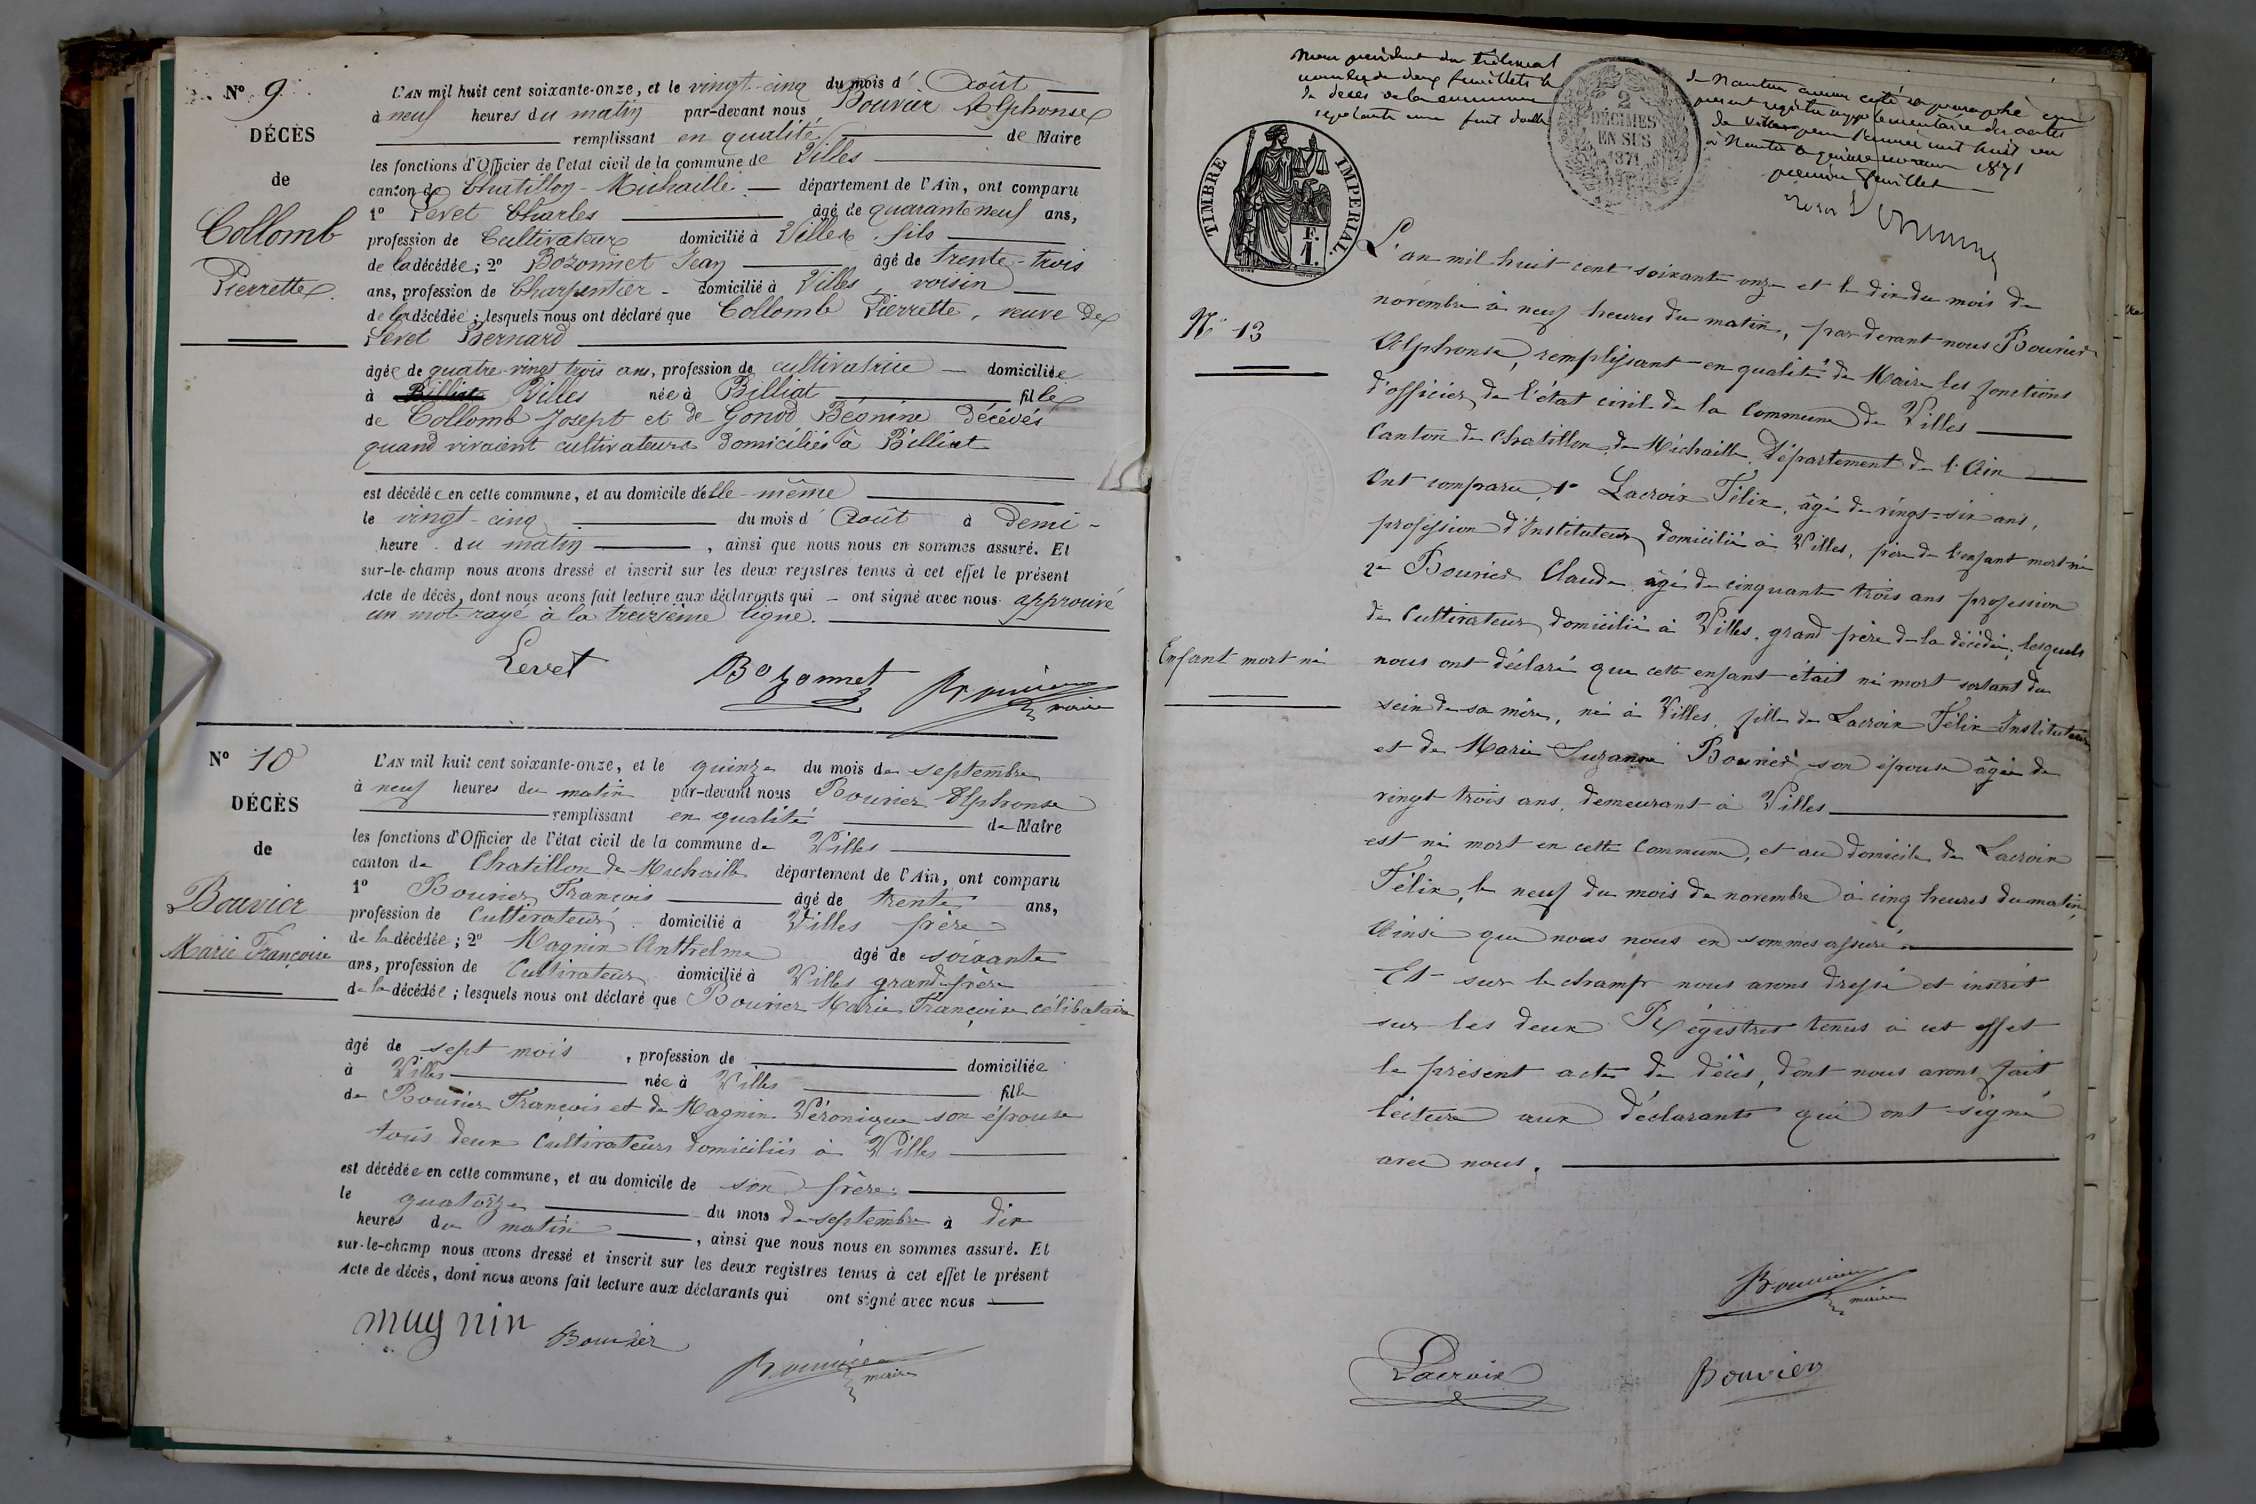 N° 9
DÉCÈS
de
Collomb
Pierrette
L'AN mil huit cent soixante-onze, et le vingt-cinq du mois d' Août
à neuf heures du matin par-devant nous Bouvier Alphonse
remplissant en qualité de Maire
les fonctions d'Officier de l'état civil de la commune de Villes
canton de Chatillon-Michaille département de l'Ain, ont comparu
1° Levet Charles âgé de quarante neuf ans,
profession de Cultivateur domicilié à Villes fils
de la décédée; 2° Bozonnet Jean âgé de trente-trois
ans, profession de Charpentier - domicilié à Villes, voisin
de la décédée; lesquels nous ont déclaré que Collomb Pierrette, veuve de
Levet Bernard
âgée de quatre-vingt trois ans, profession de cultivatrice domiciliée
à Billiat Villes née à Billiat fille
de Collomb Joseph et de Gonod Bégnine décédés
quand vivaient cultivateurs domiciliés à Billiat
est décédée en cette commune, et au domicile d'elle-même
le vingt-cinq du mois d' Août à demi-
heure du matin, ainsi que nous nous en sommes assuré. Et
sur-le-champ nous avons dressé et inscrit sur les deux registres tenus à cet effet le présent
Acte de décès, dont nous avons fait lecture aux déclarants qui - ont signé avec nous. approuvé
un mot rayé à la treizième ligne.
Levet Bozonnet Bouvier maire
N° 10
DÉCÈS
de
Bouvier
Marie Françoise
L'AN mil huit cent soixante-onze, et le quinze du mois de septembre
à neuf heures du matin par-devant nous Bouvier Alphonse
remplissant en qualité de Maire
les fonctions d'Officier de l'état civil de la commune de Villes
canton de Chatillon de Michaille département de l'Ain, ont comparu
1° Bouvier François âgé de trente ans,
profession de Cultivateur domicilié à Villes frère
de la décédée; 2° Magnin Anthelme âgé de soixante
ans, profession de Cultivateur domicilié à Villes grand-père
de la décédée; lesquels nous ont déclaré que Bouvier Marie Françoise célibataire
âgé de sept mois, profession de domiciliée
à Villes née à Villes fille
de Bouvier François et de Magnin Véronique son épouse
tous deux Cultivateurs domiciliés à Villes
est décédée en cette commune, et au domicile de son frère
le quatorze du mois de septembre à dix
heures du matin, ainsi que nous nous en sommes assuré. Et
sur-le-champ nous avons dressé et inscrit sur les deux registres tenus à cet effet le présent
Acte de décès, dont nous avons fait lecture aux déclarants qui ont signé avec nous
mugnin Bouvier Bouvier maire
Nous président du tribunal
de Nantua avons coté et paraphé
présent registre supplémentaire des actes
de décès de la commune de Villes pour l'année mil huit cent
à Nantua le quinze 1871
premier feuillet
TIMBRE IMPÉRIAL.
F.
1.
2
DÉCIMES
EN SUS
1871
N° 13
Enfant mort né
L'an mil huit cent soixante onze et le dix du mois de
novembre à neuf heures du matin, par devant nous Bouvier
Alphonse, remplissant en qualité de Maire les fonctions
d'officier de l'état civil de la Commune de Villes
Canton de Chatillon de Michaille Département de l'Ain
Ont comparu 1° Lacroix Félix, âgé de vingt-six ans,
profession d'Instituteur domicilié à Villes, père de l'enfant mort né
2° Bouvier Claude âgé de cinquante trois ans profession
de Cultivateur domicilié à Villes, grand père de la décédée; lesquels
nous ont déclaré que cette enfant était né mort sortant du
sein de sa mère, né à Villes, fille de Lacroix Félix Instituteur
et de Marie Suzanne Bouvier son épouse âgée de
vingt trois ans, demeurant à Villes
est né mort en cette Commune, et au domicile de Lacroix
Félix, le neuf du mois de novembre à cinq heures du matin,
Ainsi que nous nous en sommes assuré.
Et sur le champ nous avons dressé et inscrit
sur les deux Régistres tenus à cet effet
le présent acte de décès, dont nous avons fait
lecture aux déclarants qui ont signé
avec nous.
Bouvier maire
Lacroix Bouvier